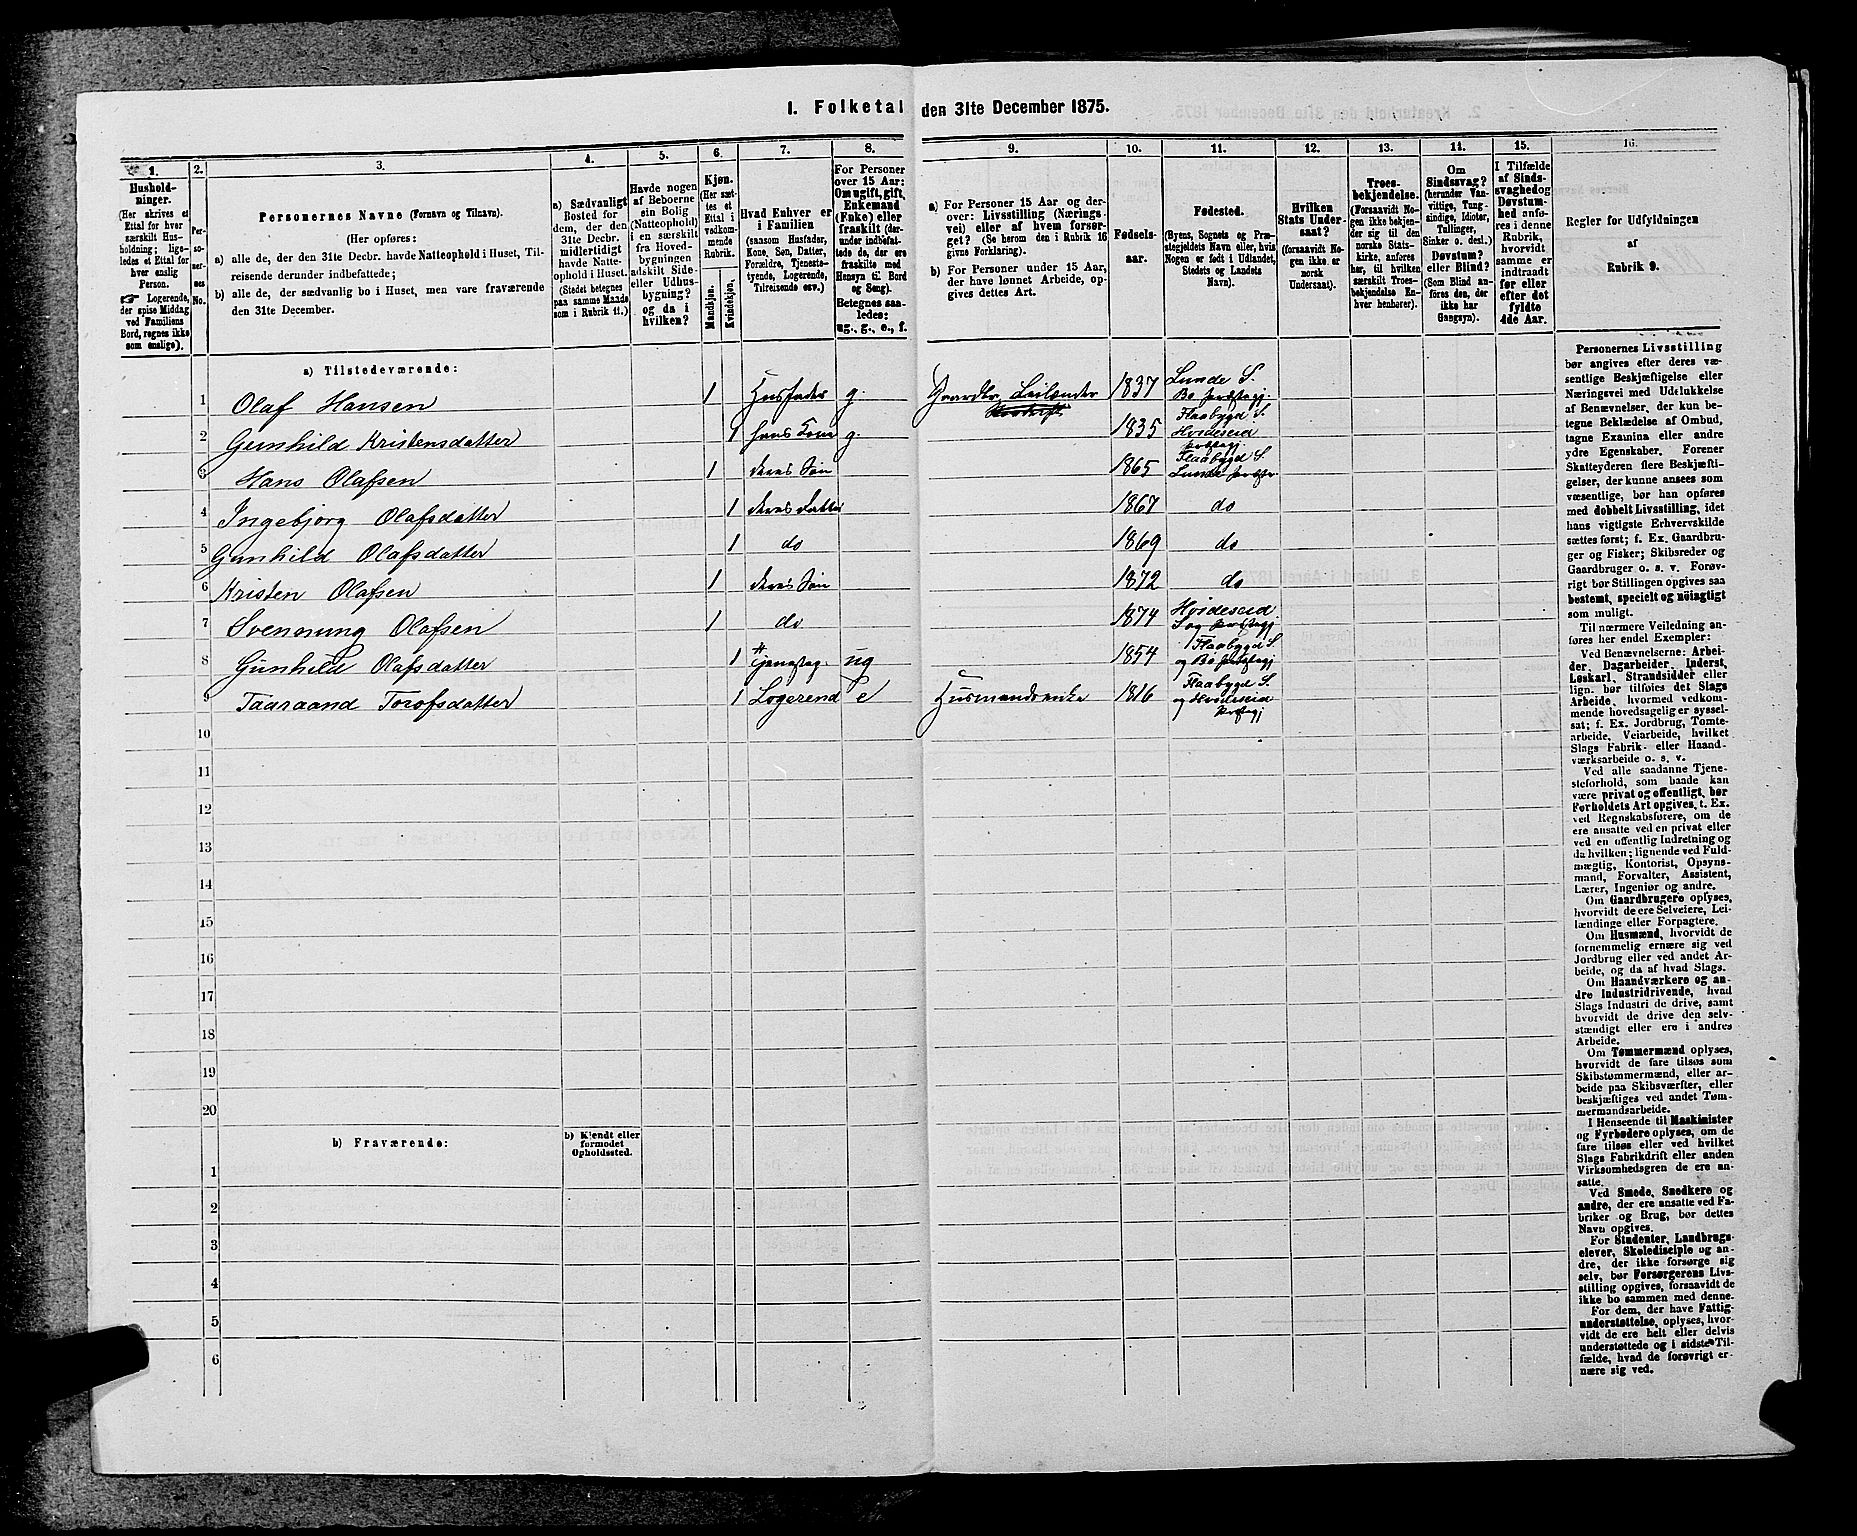 1. Folketal den 31te December 1875.
1.
Hushold-
ninger.
(Her skrives et
Ettal for hver
særskilt Hus-
holdning; lige-
ledes et Ettal for
hver enslig
Person.
☞ Logerende,
der spise Middag
ved Familiens
Bord, regnes ikke
som enslige).
2.
Per-
so-
ner-
nes
No.
3.
Personernes Navne (Fornavn og Tilnavn).
(Her opføres:
a) alle de, der den 31te Decbr. havde Natteophold i Huset, Til-
reisende derunder indbefattede;
b) alle de, der sædvanlig bo i Huset, men vare fraværende
den 31te December.
4.
a) Sædvanligt
Bosted for
dem, der den
31te Decbr.
midlertidigt
havde Natte-
ophold i Huset.
(Stedet betegnes
paa samme Maade
som i Rubrik 11.)
5.
Havde nogen
af Beboerne
sin Bolig
(Natteophold)
i en særskilt
fra Hoved-
bygningen
adskilt Side-
eller Udhus-
bygning?
og da i
hvilken?
6.
Kjøn.
(Her sæt-
tes et
Ettal i
vedkom-
mende
Rubrik.
Mandkjøn.
Kvindekjøn.
7.
Hvad Enhver er
i Familien
(saasom Husfader,
Kone, Søn, Datter,
Forældre, Tjeneste-
tyende, Logerende,
Tilreisende osv.)
8.
For Personer
over 15 Aar:
Om ugift, gift,
Enkemand
(Enke) eller
fraskilt (der-
under indbefat-
tede de, der ere
fraskilte med
Hensyn til Bord
og Seng).
Betegnes saa-
ledes:
ug., g., e., f.
9.
a) For Personer 15 Aar og der-
over: Livsstilling (Nærings-
vei) eller af hvem forsør-
get? (Se herom den i Rubrik 16
givne Forklaring).
b) For Personer under 15 Aar,
der have lønnet Arbeide, op-
gives dettes Art.
10.
Fødsels-
aar.
11.
Fødested.
(Byens, Sognets og Præ-
stegjeldets Navn eller, hvis
Nogen er født i Udlandet,
Stedets og Landets
Navn).
12.
Hvilken
Stats Under-
saat?
(forsaavidt No-
gen ikke er
norsk
Undersaat).
13.
Troes-
bekjendelse.
(Forsaavidt No-
gen ikke bekjen-
der sig til den
norske Stats-
kirke, anføres
her, til hvilken
særskilt Troes-
bekjendelse En-
hver henhører).
14.
Om
Sindssvag?
(herunder Van-
vittige, Tung-
sindige, Idioter,
Tullinger,
Sinker o. desl.)
Døvstum?
eller Blind?
(Som Blind an-
føres den, der
ikke har
Gangsyn).
15.
I Tilfælde
af Sinds-
svaghed og
Døvstum-
hed anfø-
res i denne
Rubrik,
hvorvidt
samme er
indtraadt
før eller
efter det
fyldte
4de Aar.
16.
Regler for Udfyldningen
af
Rubrik 9.
a) Tilstedeværende:
1 Olaf Hansen 1 Husfader g. Gaardbr. Leilænder 1837 Lunde S.
Bø præstegj
2 Gunhild Kristensdatter 1 hans Kone g. 1835 Flaabygd S.
Hvideseid
præstegj.
3 Hans Olafsen 1 deres Søn 1865 Flaabygd S.
Lunde præstegj
4 Ingebjørg Olafsdatter 1 deres datter 1867 do
5 Gunhild Olafsdatter 1 do 1869 do
6 Kristen Olafsen 1 deres Søn 1872 do
7 Svennung Olafsen 1 do 1874 Hvideseid
S og præstegj
8 Gunhild Olafsdatter 1 tjenesteg. ug 1854 Flaabygd S.
og Bø præstegj
9 Taaraand Torofsdatter 1 Logerend e Husmandsenke 1816 Flaabygd S.
og Hvideseid
præstegj
10
11
12
13
14
15
16
17
18
19
20
b) Fraværende:
b) Kjendt eller
formodet
Opholdssted.
1
2
3
4
5
6
Personernes Livsstilling
bør angives efter deres væ-
sentlige Beskjæftigelse eller
Næringsvei med Udelukkelse
af Benævnelser, der kun be-
tegne Beklædelse af Ombud,
tagne Examina eller andre
ydre Egenskaber. Forener
Skatteyderen flere Beskjæfti-
gelser, der kunne ansees som
væsentlige, bør han opføres
med dobbelt Livsstilling, idet
hans vigtigste Erhvervskilde
sættes først; f. Ex. Gaardbru-
ger og Fisker; Skibsreder og
Gaardbruger o. s. v. Forøv-
rigt bør Stillingen opgives saa
bestemt, specielt og nøiagtigt
som muligt.
Til nærmere Veiledning an-
føres her endel Exempler:
Ved Benævnelserne: Arbei-
der, Dagarbeider, Inderst,
Løskarl, Strandsidder eller
lign. bør tilføies det Slags
Arbeide, hvormed vedkom-
mende hovedsagelig er syssel-
sat; f. Ex. Jordbrug, Tomte-
arbeide, Veiarbeide, hvilket
Slags Fabrik- eller Haand-
værksarbeide o. s. v.
Ved alle saadanne Tjene-
steforhold, som baade kan
være privat og offentligt, bør
Forholdets Art opgives, t. Ex.
ved Regnskabsførere, om de
ere ansatte ved en privat eller
ved en offentlig Indretning og
da hvilken; lignende ved Fuld-
mægtig, Kontorist, Opsyns-
mand, Forvalter, Assistent,
Lærer, Ingeniør og andre.
Om Gaardbrugere oplyses,
hvorvidt de ere Selveiere, Lei-
lændinge eller Forpagtere.
Om Husmænd, hvorvidt de
fornemmelig ernære sig ved
Jordbrug eller ved andet Ar-
beide, og da af hvad Slags.
Om Haandværkere og an-
dre Industridrivende, hvad
Slags Industri de drive, samt
hvorvidt de drive den selv-
stændigt eller ere i andres
Arbeide.
Om Tømmermænd oplyses,
hvorvidt de fare tilsøs som
Skibstømmermænd, eller ar-
beide paa Skibsværfter, eller
beskjæftiges ved andet Tøm-
mermandsarbeide.
I Henseende til Maskinister
og Fyrbødere oplyses, om de
fare tilsøs eller ved hvilket
Slags Fabrikdrift eller anden
Virksomhedsgren de ere an-
satte.
Ved Smede, Snedkere og
andre, der ere ansatte ved Fa-
briker og Brug, bør dettes
Navn opgives.
For Studenter, Landbrugs-
elever, Skoledisciple og an-
dre, der ikke forsørge sig
selv, bør Forsørgerens Livs-
stilling opgives, forsaavidt de
ikke bo sammen med denne.
For dem, der have Fattig-
understøttelse, oplyses, hvor-
vidt de ere helt eller delvis
understøttede og i sidste Til-
fælde, hvad de forøvrigt er-
nære sig ved.